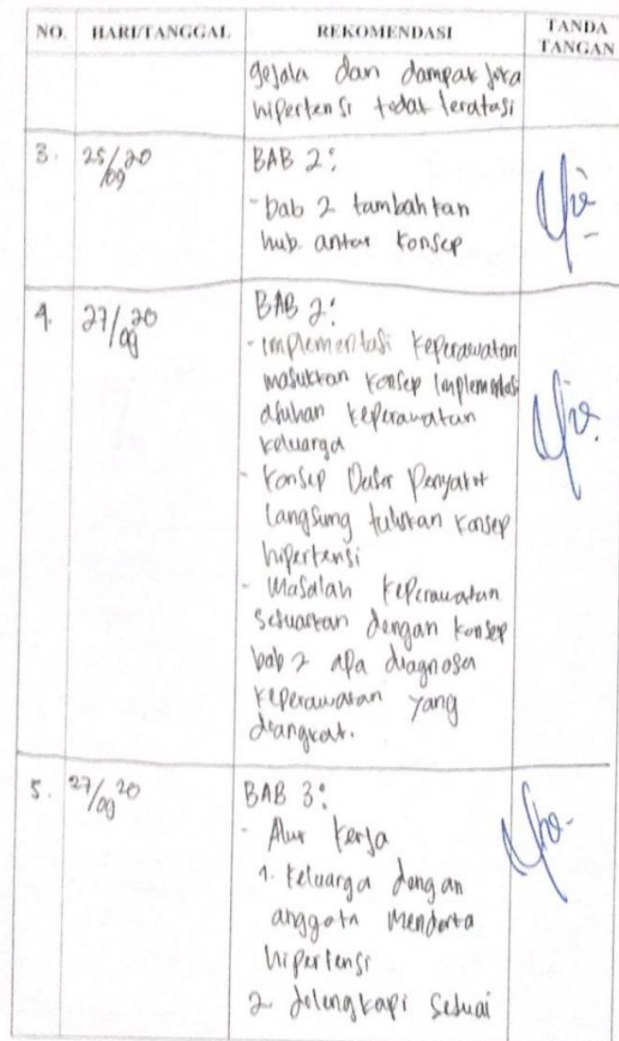 NO. HARI/TANGGAL REKOMENDASI TANDA TANGAN
gejala dan dampak jika
hipertensi tidak teratasi
3. 25/09 20 BAB 2:
- bab 2 tambahkan
hub. antar konsep
4. 27/09 20 BAB 2:
- implementasi keperawatan
masukkan konsep implementasi
asuhan keperawatan
keluarga
- Konsep Dasar Penyakit
langsung tuliskan konsep
hipertensi
- Masalah keperawatan
sesuaikan dengan konsep
bab 2 apa diagnosa
keperawatan yang
diangkat.
5. 27/09 20 BAB 3:
- Alur kerja
1. keluarga dengan
anggota menderita
hipertensi
2 dilengkapi sesuai